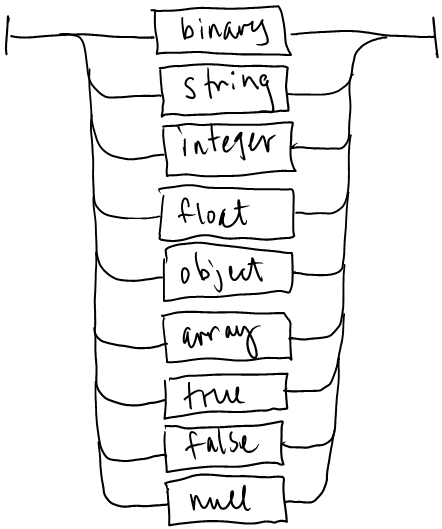 binary
string
integer
float
object
array
true
false
null